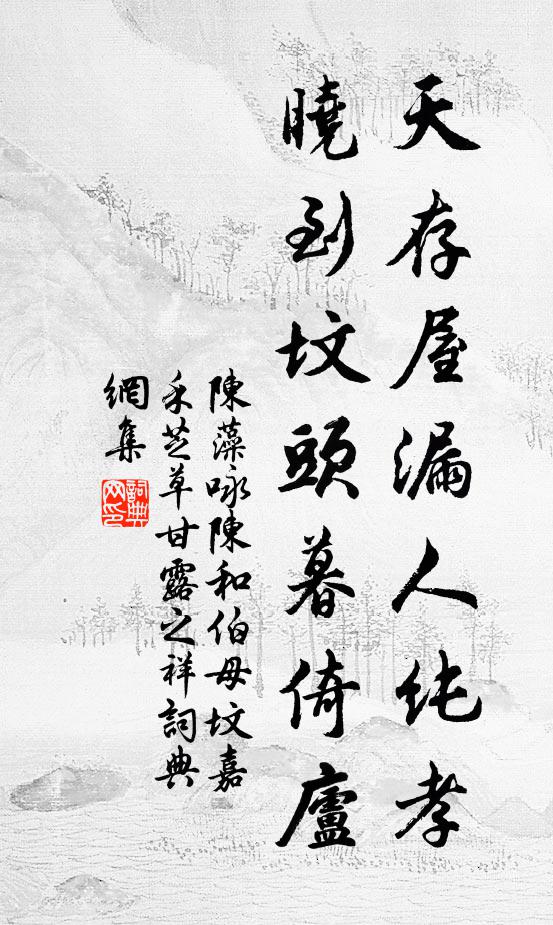 天存屋漏人纯孝
曉到坟頭暮倚廬
陳藻咏陳和伯母坟嘉
禾芝草甘露之祥詞典
網集
詞典
网印